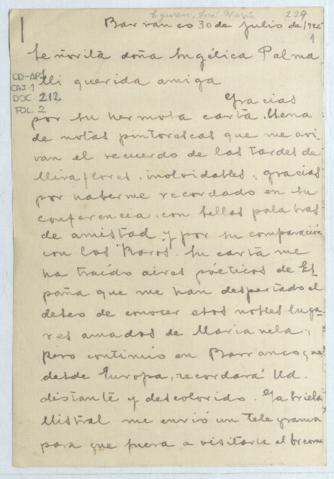 Eguren, José María
229
Barranco 30 de Julio de 192
1
Señorita doña Angélica Palma
Mi querida amiga
CD-AP
CAJ 1
DOC. 212
FOL. 2
Gracias
por su hermosa carta llena
de notas pintorescas que me avi
van el recuerdo de las tardes de
Miraflores, inolvidables; gracias
por haberme recordado en su
conferencia, con bellas palabras
de amistad y por su comparación
con los "Boros". Su carta me
ha traído aires poéticos de Es
paña que me han despertado el
deseo de conocer esos nobles luga
res amados de Marianela;
pero continúo en Barranco, que
desde Europa, recordará Ud.
distante y descolorido. Gabriela
Mistral me envió un telegrama
para que fuera a visitarla al